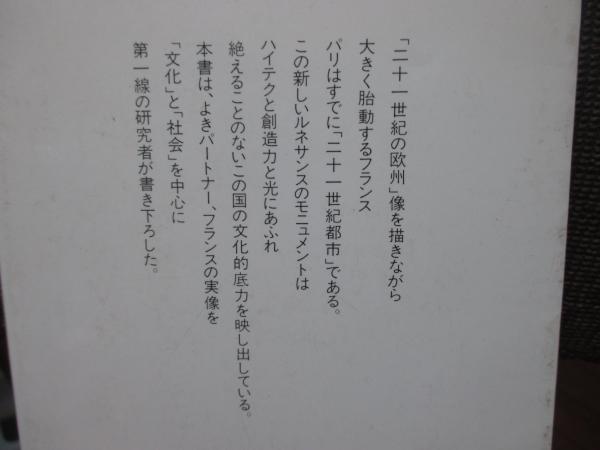 「二十一世紀の欧州」像を描きながら
大きく胎動するフランス
パリはすでに「二十一世紀都市」である。
この新しいルネサンスのモニュメントは
ハイテクと創造力と光にあふれ
絶えることのないこの国の文化的底力を映し出している。
本書は、よきパートナー、フランスの実像を
「文化」と「社会」を中心に
第一線の研究者が書き下ろした。